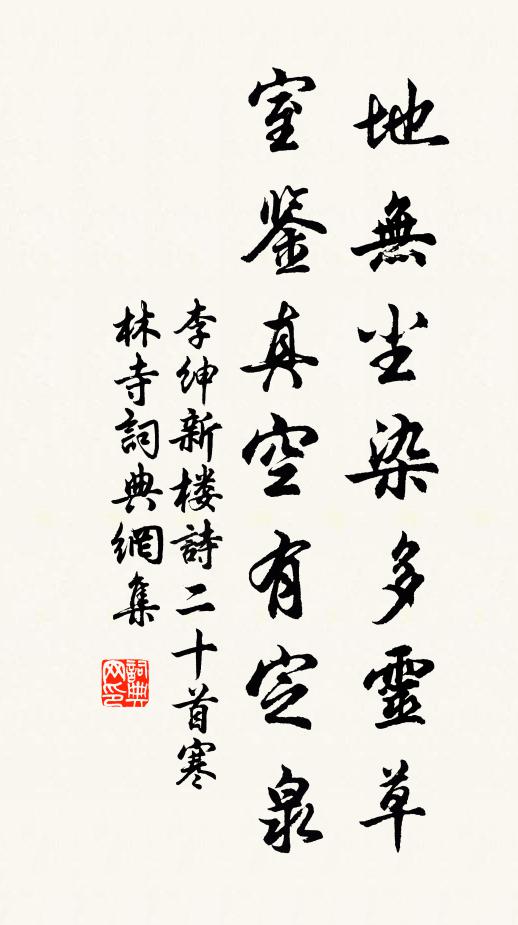 地無尘染多靈草
室鉴真空有定泉
李绅新楼詩二十首寒
林寺詞典網集
詞典网印